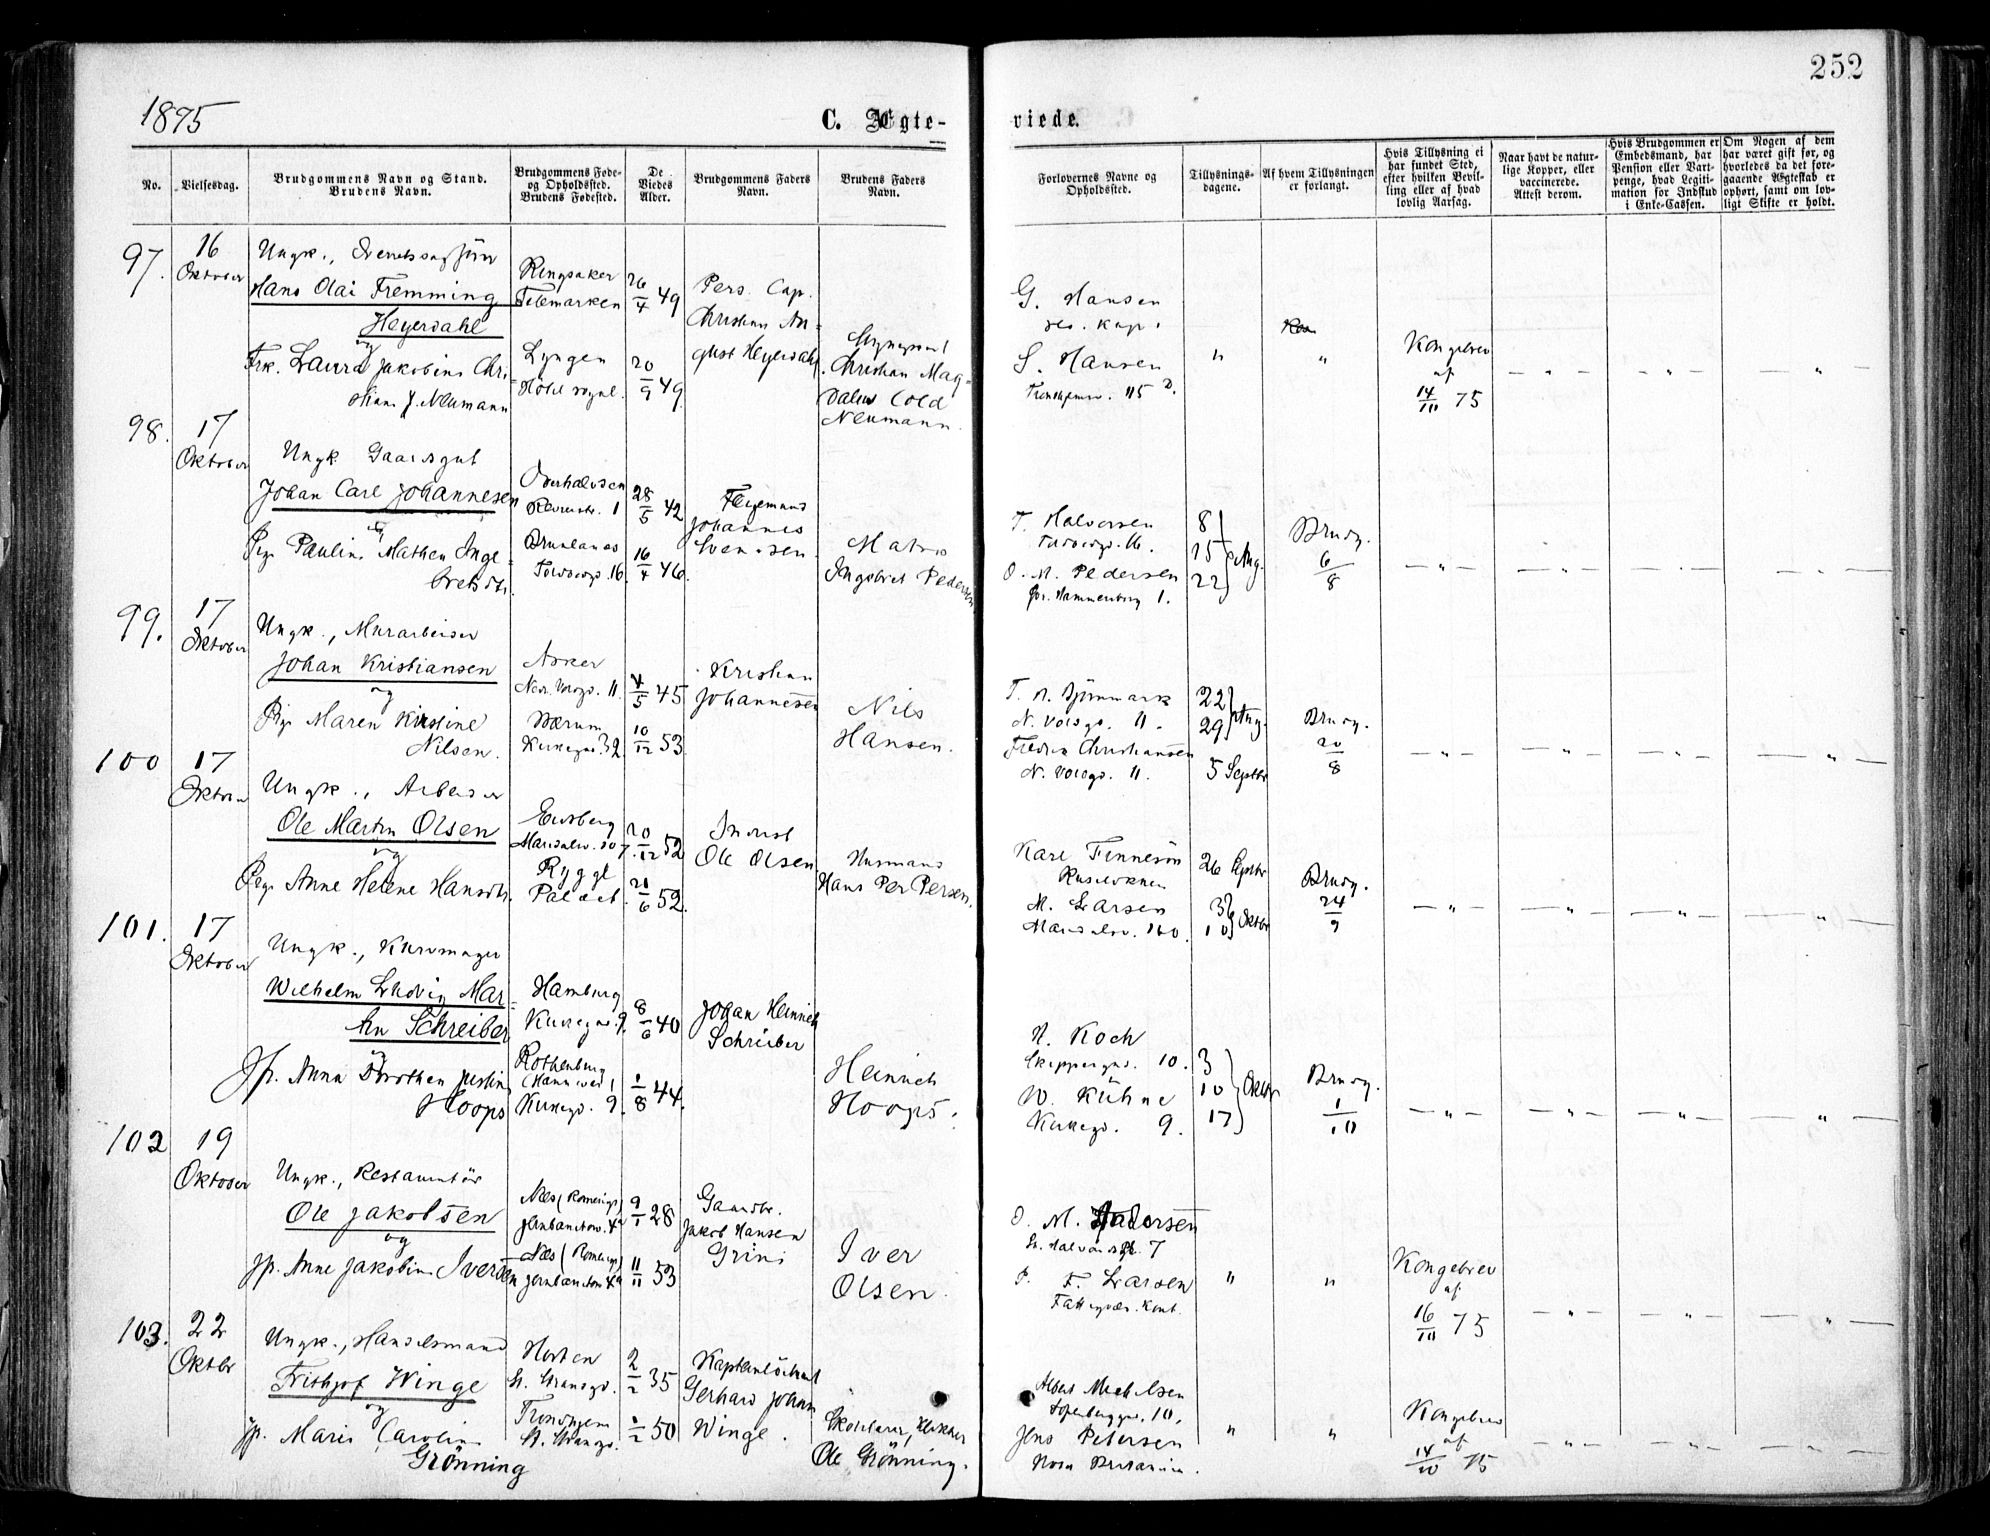 252
1875
C. Ægte-
viede.
No.
Vielsesdag.
Brudgommens Navn og Stand.
Brudens Navn.
Brudgommens Føde-
og Opholdssted.
Brudens Fødested.
De
Viedes
Alder.
Brudgommens Faders
Navn.
Brudens Faders
Navn.
Forlovernes Navne og
Opholdssted.
Tillysnings-
dagene.
Af hvem Tillysningen
er forlangt.
Hvis Tillysning ei
har fundet Sted,
efter hvilken Bevil-
ling eller af hvad
lovlig Aarsag.
Naar havt de natur-
lige Kopper, eller
vaccinerede.
Attest derom.
Hvis Brudgommen er
Embedsmand, har
Pension eller Vart-
penge, hvad Legiti-
mation for Indskud
i Enke-Cassen.
Om Nogen af dem
har været gift før, og
hvorledes da det fore-
gaaende Ægteskab er
ophørt, samt om lov-
ligt Skifte er holdt.
97.
16
Oktober
Ungk.,
Hans Olai Fremming
Heyerdahl
og
Frk. Laura Jakobine Chri-
stiane J. Neumann
Ringsaker
Telemarken
26/4 49
Lyngen
20/9 49.
Pers. Cap.
Christian Au-
gust Heyerdahl
Christian Mag-
dalus Cold
Neumann.
G. Hansen
res. kap.
S. Hansen
115
"
"
Kongebrev
af
14/10 75
— " —
— " —
— " —
98.
17
Oktober
Ungk. Gaardsgut
Johan Carl Johannesen
og
Pige Pauline Mathea Inge-
bretsdtr.
Overhalvsen
28/5 42
Brunlanes
16.
16/4 46.
Johannes
Svendsen.
Matros
Ingebret Pedersen
T. Halvorsen
16.
O. M. Pedersen
Hammersborg 1.
8
15
22 } Aug.
Brudg.
6/8
— " —
— " —
— " —
— " —
99.
17
Oktober
Ungk., Murarbeider
Johan Kristiansen
og
Pige Maren Kirstine
Nilsen.
Asker
11.
4/5 45
Bærum
Kirkegd. 32.
10/12 53.
Kristian
Johannesen
Nils
Hansen.
N. Voldgd. 11.
Fredrik Christiansen
N. Voldgd. 11.
22
29 } Aug.
5 Septbr
Brudg.
20/8
— " —
— " —
— " —
— " —
100
17
Oktober
Ungk., Arbeider
Ole Martin Olsen
og
Pige Anne Helene Hansdtr.
Eidsberg
20/12 52
Rygge
21/6 52.
Inderst
Ole Olsen
Husmand
Hans Per Persen.
Karl Tinnesen
M. Larsen
Maridalsv. 160.
26 Septbr
3
10 } Oktbr
Brudg.
24/9
— " —
— " —
— " —
— " —
101.
17
Oktober
Ungk., Kurvmager
Wilhelm Ludvig Mar-
tin Schreiber
og
Jfr. Anna Dorothea Justine
Hoops
Hamburg
Kirkegd. 9.
8/6 40
Rothenburg
(Hannover)
Kirkegd. 9.
1/8 44.
Johan Heinrich
Schreiber
Heinrich
Hoops.
H. Koch
Skippergd. 10.
W. Kühne
Kirkegd. 9.
3
10
17 } Oktbr
Brudg.
1/10
— " —
— " —
— " —
— " —
102
19
Oktober
Ungk., Restauratør
Ole Jakobsen
og
Jfr. Anne Jakobine Iversen
Næs (Romerige)
Jernbanetorv. 4a
9/1 28
Næs (Romerige)
Jernbanetorv 4a
11/11 53
Gaardbr.
Jakob Hansen
Grini
Iver
Olsen.
O. M. Andersen
7
P. F. Larsen
Fattigvæs. Kont.
"
"
Kongebrev
af
16/10 75
— " —
— " —
— " —
103.
22
Oktbr
Ungk., Handelsmand
Frithjof Winge
og
Jfr. Marie Caroline
Grönning
Horten
St. Strandgd.
2/2 35
Trondhjem
St. Strandgd.
1/2 50
Kapteinløitnant
Gerhard Johan
Winge.
Skolelærer, Klokker
Ole Grönning.
Albert Michelsen
10.
Jens Petersen
"
"
Kongebrev
af
14/10 75
— " —
— " —
— " —